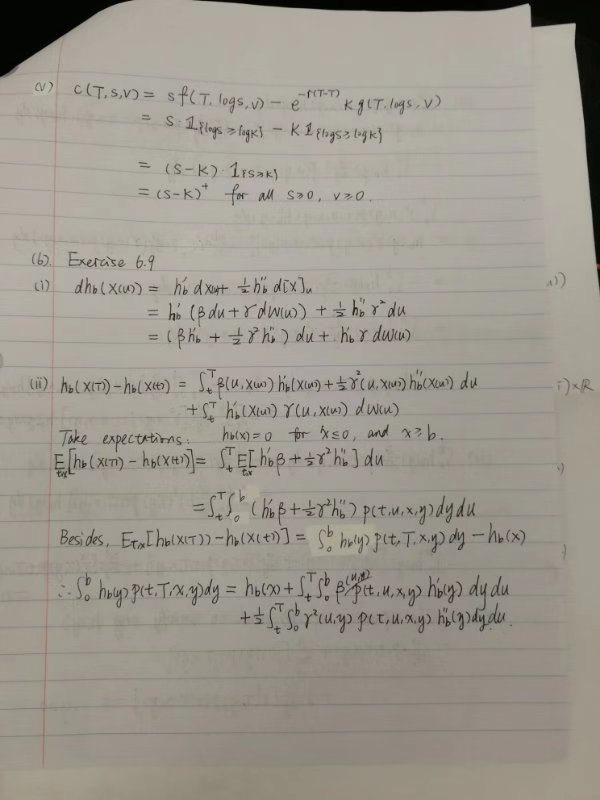 (v) c(T,s,v) = s f(T, log s, v) - e^{-r(T-T)} K g(T, log s, v)
= s·𝟙_{{log s ≥ log K}} - K 𝟙_{{log s ≥ log K}}
= (s-K)·𝟙_{{s≥K}}
= (s-K)^+ for all s≥0, v≥0.
(b). Exercise 6.9
(i) dh_b(X(u)) = h_b' dX(u) + ½ h_b'' d[X]_u
= h_b' (β du + γ dW(u)) + ½ h_b'' γ² du
= (β h_b' + ½ γ² h_b'') du + h_b' γ dW(u)
(ii) h_b(X(T)) - h_b(X(t)) = ∫_t^T β(u, X(u)) h_b'(X(u)) + ½ γ²(u, X(u)) h_b''(X(u)) du
+ ∫_t^T h_b'(X(u)) γ(u, X(u)) dW(u)
Take expectations: h_b(x) = 0 for x≤0, and x≥b.
E_{t,x}[h_b(X(T)) - h_b(X(t))] = ∫_t^T E_{t,x}[h_b' β + ½ γ² h_b''] du
= ∫_t^T ∫_0^b (h_b' β + ½ γ² h_b'') p(t,u,x,y) dy du
Besides, E_{t,x}[h_b(X(T)) - h_b(X(t))] = ∫_0^b h_b(y) p(t,T,x,y) dy - h_b(x)
∴ ∫_0^b h_b(y) p(t,T,x,y) dy = h_b(x) + ∫_t^T ∫_0^b β(u,y) p(t,u,x,y) h_b'(y) dy du
+ ½ ∫_t^T ∫_0^b γ²(u,y) p(t,u,x,y) h_b''(y) dy du.